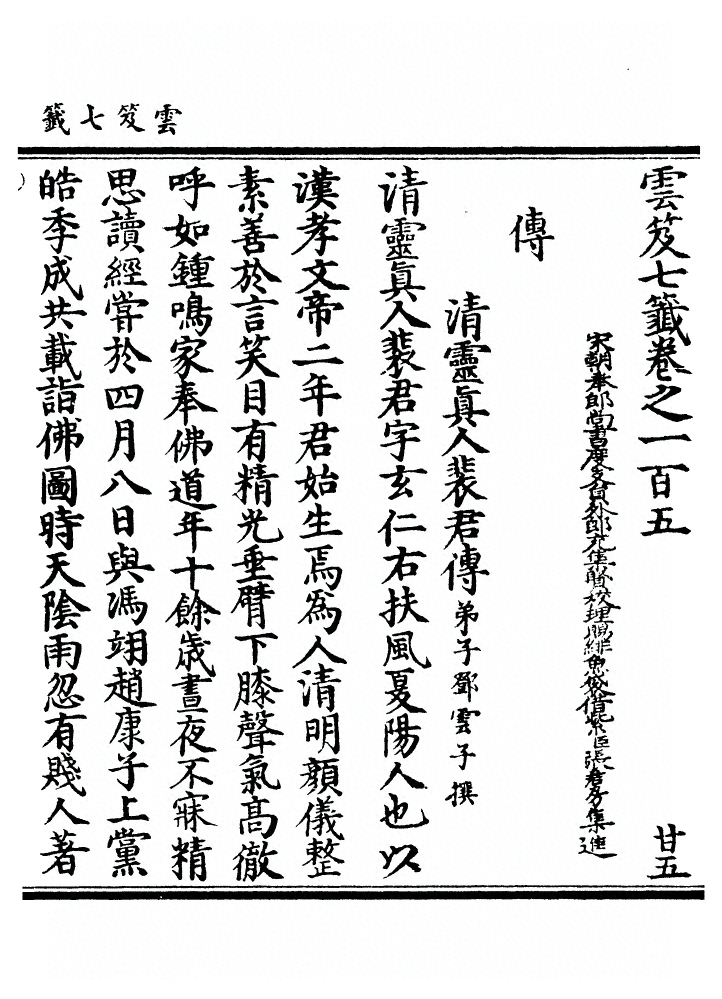 雲笈七籤
雲笈七籤卷之一百五　廿五
宋朝奉郎尚書度支員外郎充集賢校理賜緋魚袋借紫臣張君房集進
傳
清靈眞人裴君傳弟子鄧雲子撰
清靈眞人裴君字玄仁右扶風夏陽人也以
漢孝文帝二年君始生焉爲人清明顏儀整
素善於言笑目有精光垂臂下膝聲氣高徹
呼如鍾鳴家奉佛道年十餘歲晝夜不寐精
思讀經嘗於四月八日與馮翊趙康子上黨
皓季成共載詣佛圖時天陰雨忽有賤人著